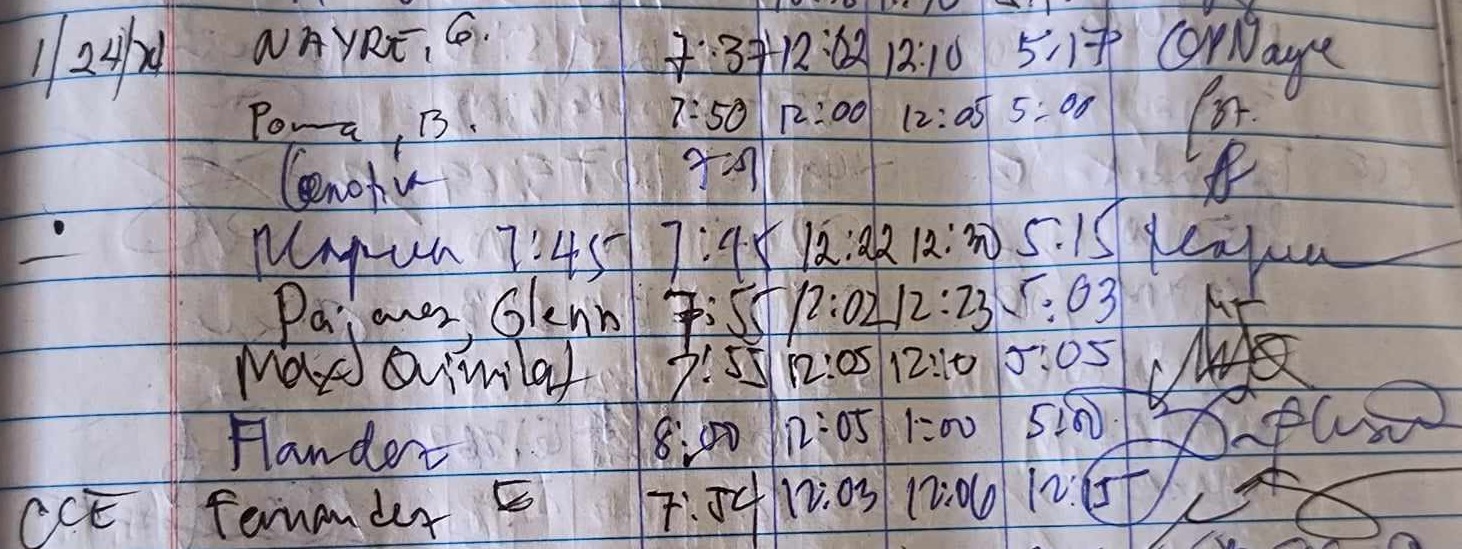 1/24/24 NAYRE, G. 7:37 12:02 12:10 5:17 GPNayre
Poma, B. 7:50 12:00 12:05 5:00
7:51
7:45 7:45 12:22 12:30 5:15
Pajanes, Glenn 7:55 12:02 12:23 5:03
Quimilat 7:55 12:05 12:10 5:05
Flandez 8:00 12:05 1:00 5:00
CCE Fernandez E 7:54 12:03 12:06 12:15